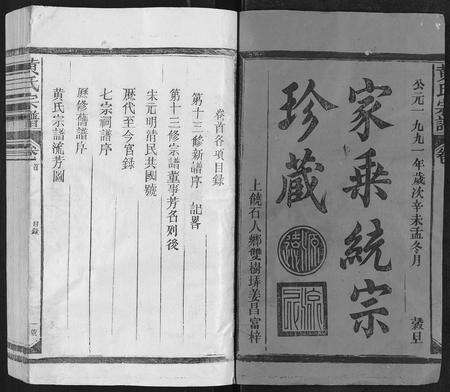 公元一九九一年歲次辛未孟冬月 穀旦
家乘統宗
珍藏
上饒石人鄉雙樹塝姜昌富梓
黃氏宗譜
卷首各項目錄
第十三修新譜序 記畧
第十三修宗譜董事芳名列後
宋元明清民共國號
歷代至今官錄
七宗祠譜序
歷修舊譜序
黃氏宗譜流芳圖
黃氏宗譜 卷首 目錄 一號